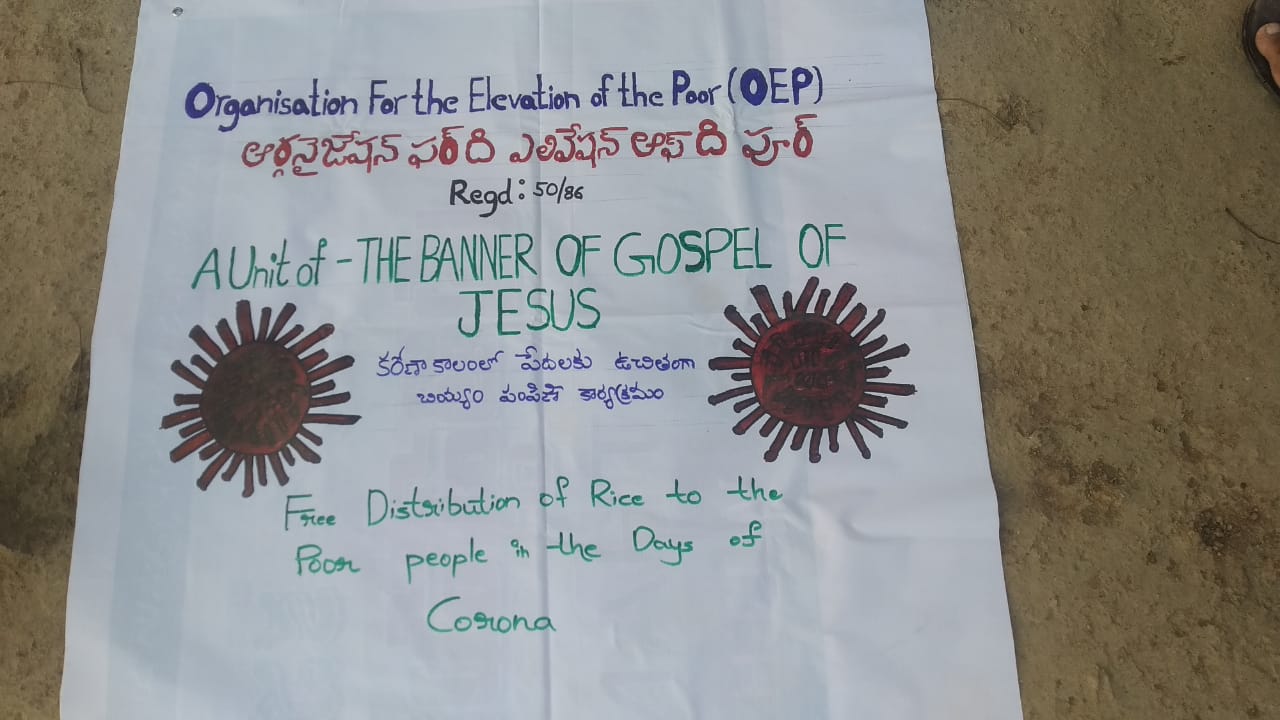 Organisation For the Elevation of the Poor (OEP)
ఆర్గనైజేషన్ ఫర్ ది ఎలివేషన్ ఆఫ్ ది పూర్
Regd: 50/86
A Unit of - THE BANNER OF GOSPEL OF
JESUS
కరోణా కాలంలో పేదలకు ఉచితంగా
బియ్యం పంపిణీ కార్యక్రమం
Free Distribution of Rice to the
Poor people in the Days of
Corona